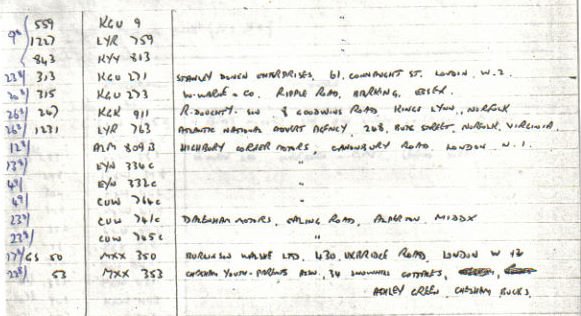 9th 559 KGU 9 "
1227 LYR 759
843 KYY 813
23rd 313 KGU 271 STANLEY DONEN ENTERPRISES, 61, CONNAUGHT ST. LONDON, W.2.
315 KGU 273 W. WARE & CO. RIPPLE ROAD, BARKING, ESSEX.
26th 267 KGK 911 R. DOUGHTY & SON 8 GOODWINS ROAD, KINGS LYNN, NORFOLK
26th 1231 LYR 763 ATLANTIC NATIONAL ADVERT AGENCY, 268, BUTE STREET, NORFOLK, VIRGINIA.
12th ALM 809B HIGHBURY CORNER MOTORS, CANONBURY ROAD, LONDON N.1.
13th EYN 336C "
4th EYN 332C
4th CUW 764C "
23rd CUW 741C DAGENHAM MOTORS, EALING ROAD, ALPERTON MIDDX
23rd CUW 765C "
17th GS 50 MXX 350 LTD, 430, UXBRIDGE ROAD, LONDON W 12
53 MXX 353 CHESHAM YOUTH - PARENTS ASSN, 34 COTTAGES,
ASHLEY GREEN, CHESHAM BUCKS.